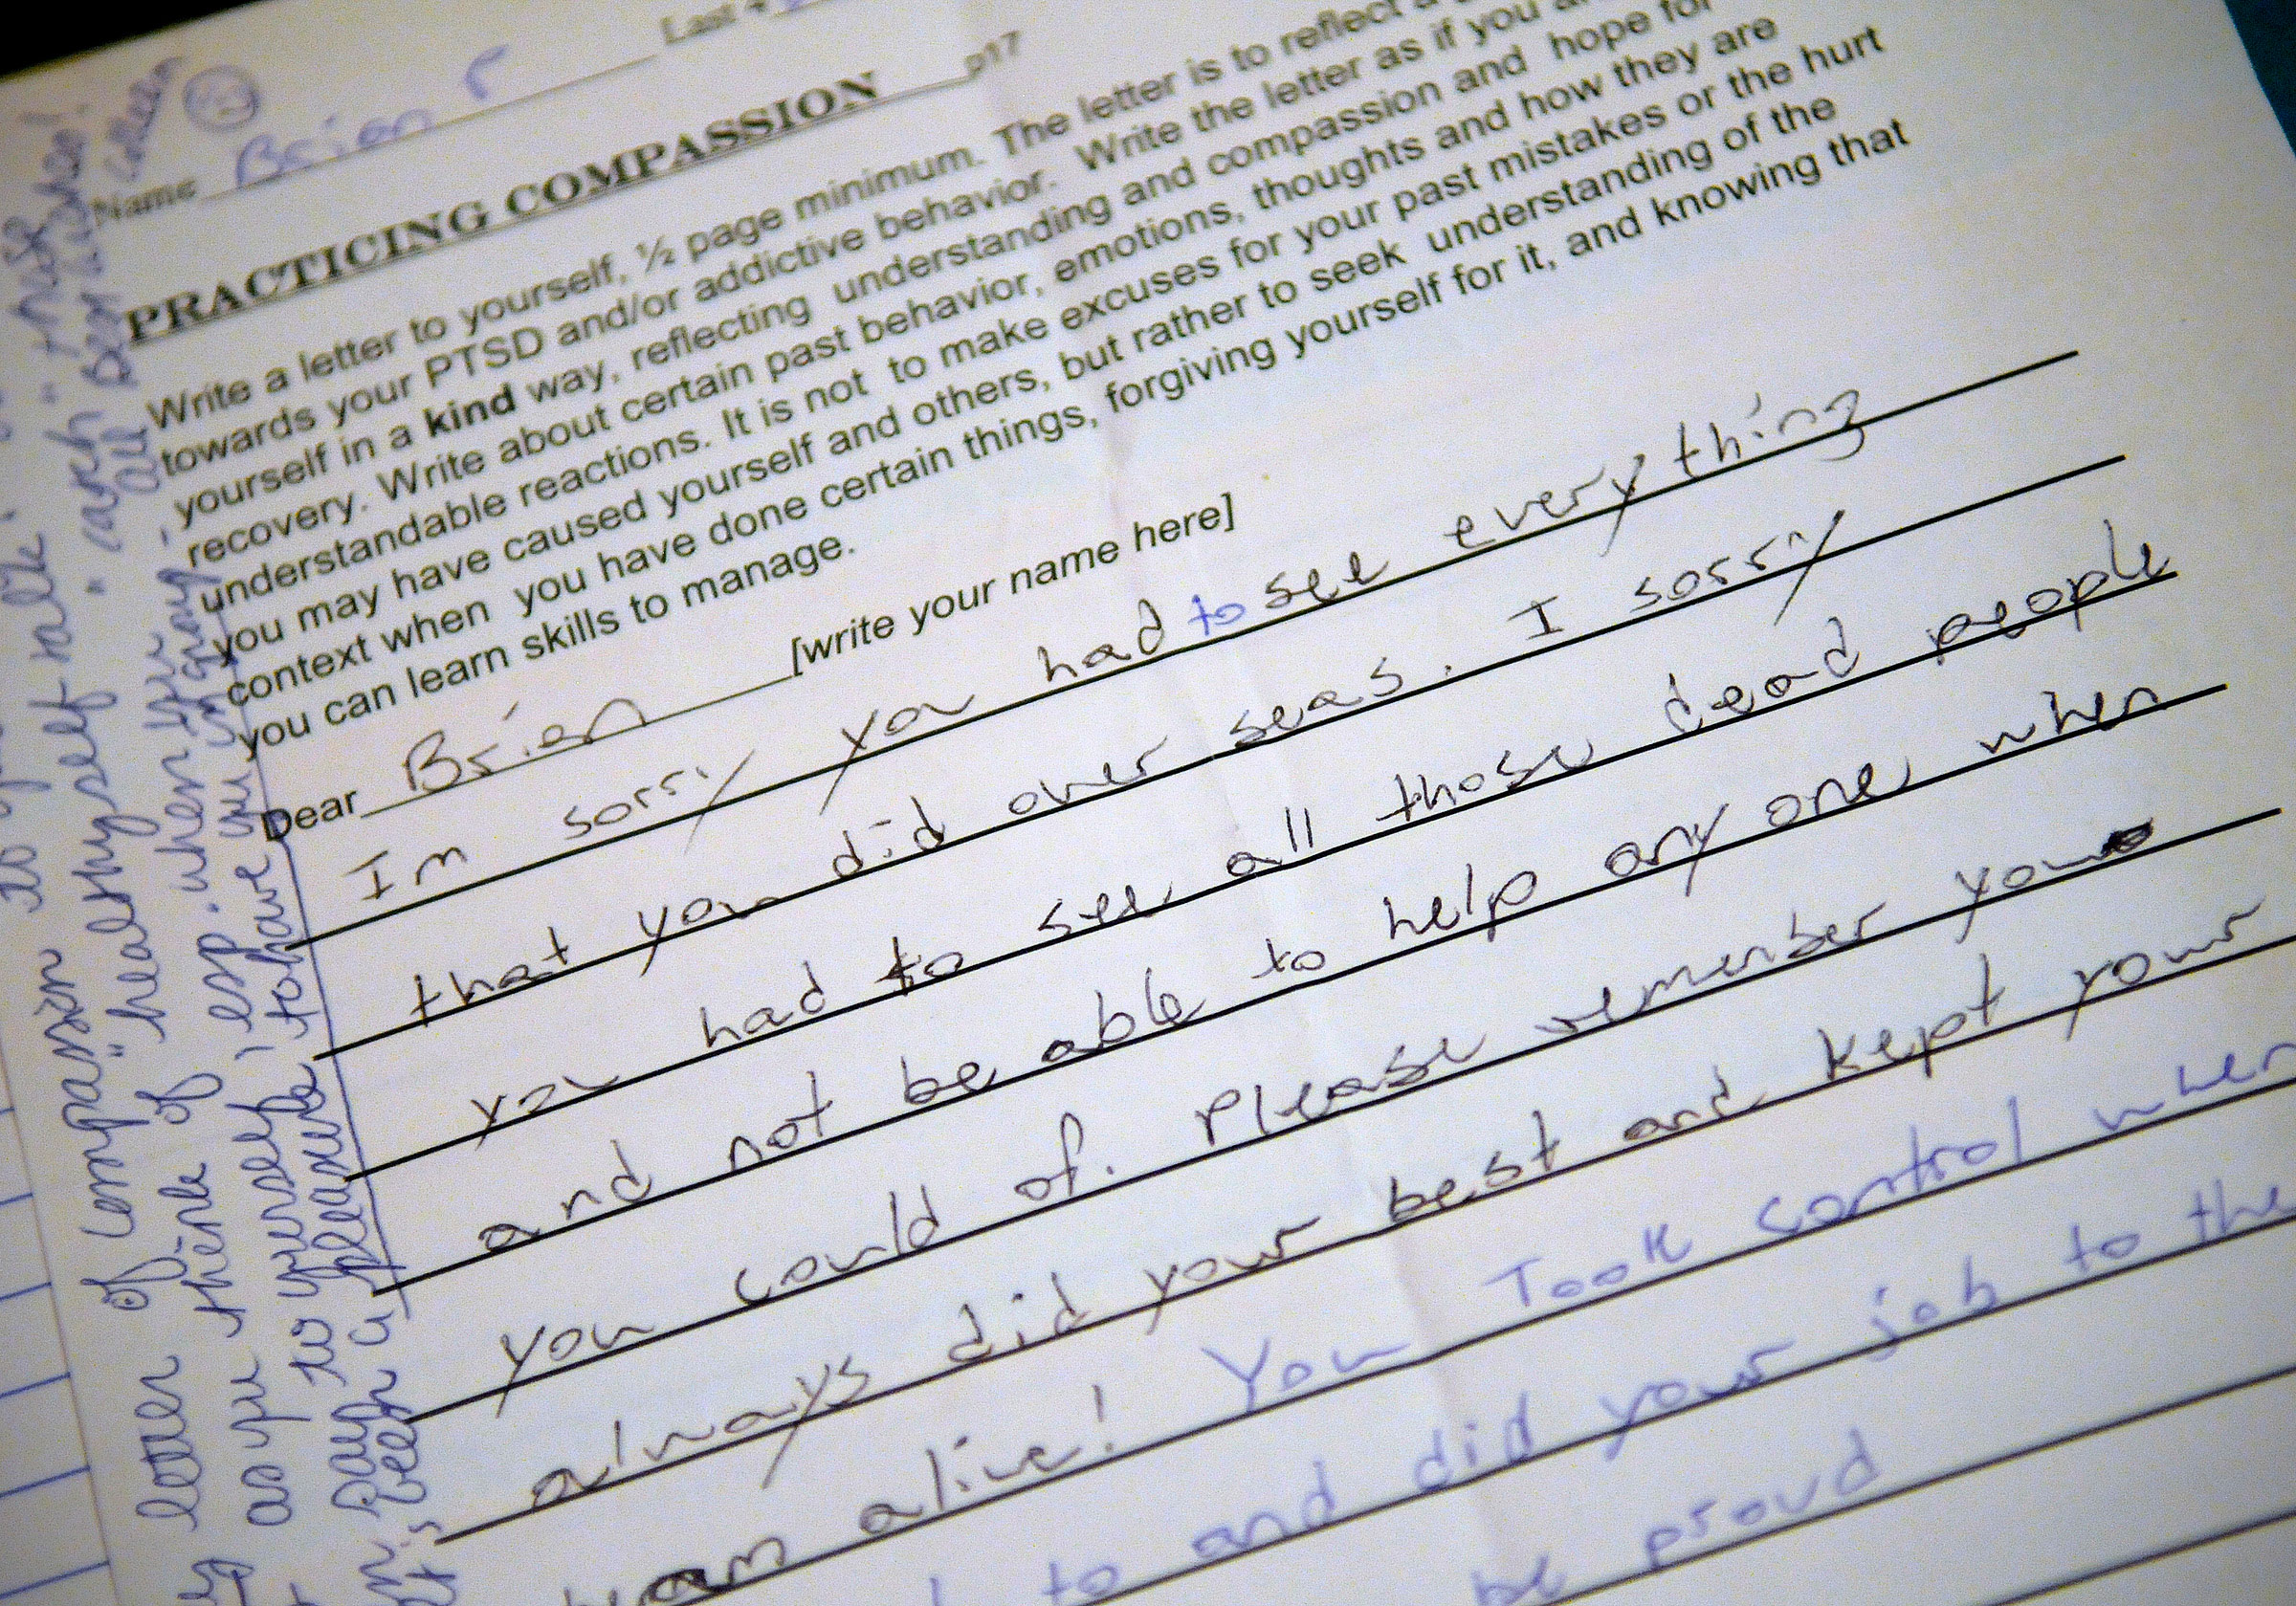 Name Brian Last 4
PRACTICING COMPASSION p17
Write a letter to yourself, ½ page minimum. The letter is to reflect a
towards your PTSD and/or addictive behavior. Write the letter as if you
yourself in a kind way, reflecting understanding and compassion and hope for
recovery. Write about certain past behavior, emotions, thoughts and how they are
understandable reactions. It is not to make excuses for your past mistakes or the hurt
you may have caused yourself and others, but rather to seek understanding of the
context when you have done certain things, forgiving yourself for it, and knowing that
you can learn skills to manage.
Dear Brian [write your name here]
Im sorry you had to see everything
that you did over seas. I sorry
you had to see all those dead people
and not be able to help any one, when
you could of. Please remember you
always did your best and kept your
alive! You Took control when
to and did your job to the
be proud
letter of compassion to
as you think of "healthy self-talk"
to yourself, esp. when you
pleasure to have you in group